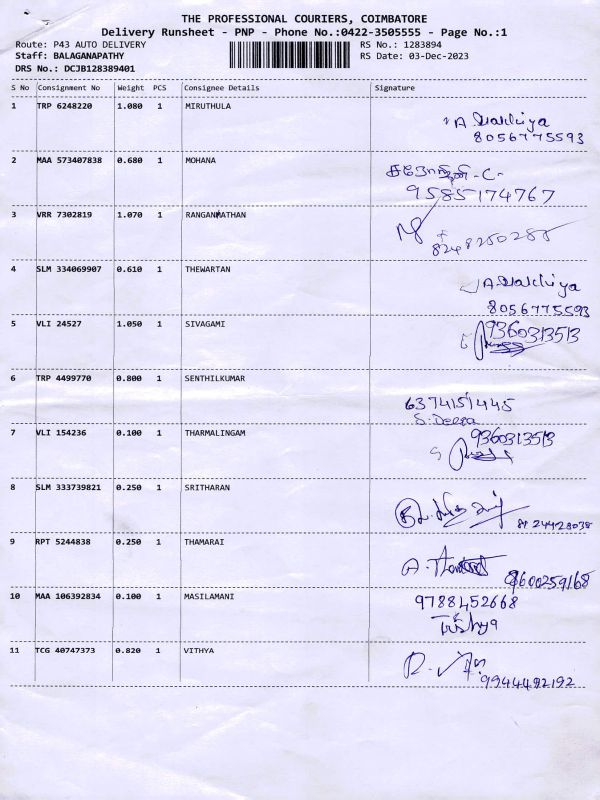 THE PROFESSIONAL COURIERS, COIMBATORE
Delivery Runsheet - PNP - Phone No.:0422-3505555 - Page No.:1
Route: P43 AUTO DELIVERY RS No.: 1283894
Staff: BALAGANAPATHY RS Date: 03-Dec-2023
DRS No.: DCJB128389401
S No Consignment No Weight PCS Consignee Details Signature
1 TRP 6248220 1.080 1 MIRUTHULA
8056775593
2 MAA 573407838 0.680 1 MOHANA
9585174767
3 VRR 7302819 1.070 1 RANGANATHAN
4 SLM 334069907 0.610 1 THEWARTAN
8056775593
5 VLI 24527 1.050 1 SIVAGAMI 9360313513
6 TRP 4499770 0.800 1 SENTHILKUMAR
6374151445
S. Deepa
7 VLI 154236 0.100 1 THARMALINGAM 9360313513
8 SLM 333739821 0.250 1 SRITHARAN
9 RPT 5244838 0.250 1 THAMARAI
9600259168
10 MAA 106392834 0.100 1 MASILAMANI 9788452668
11 TCG 40747373 0.820 1 VITHYA
9944492192